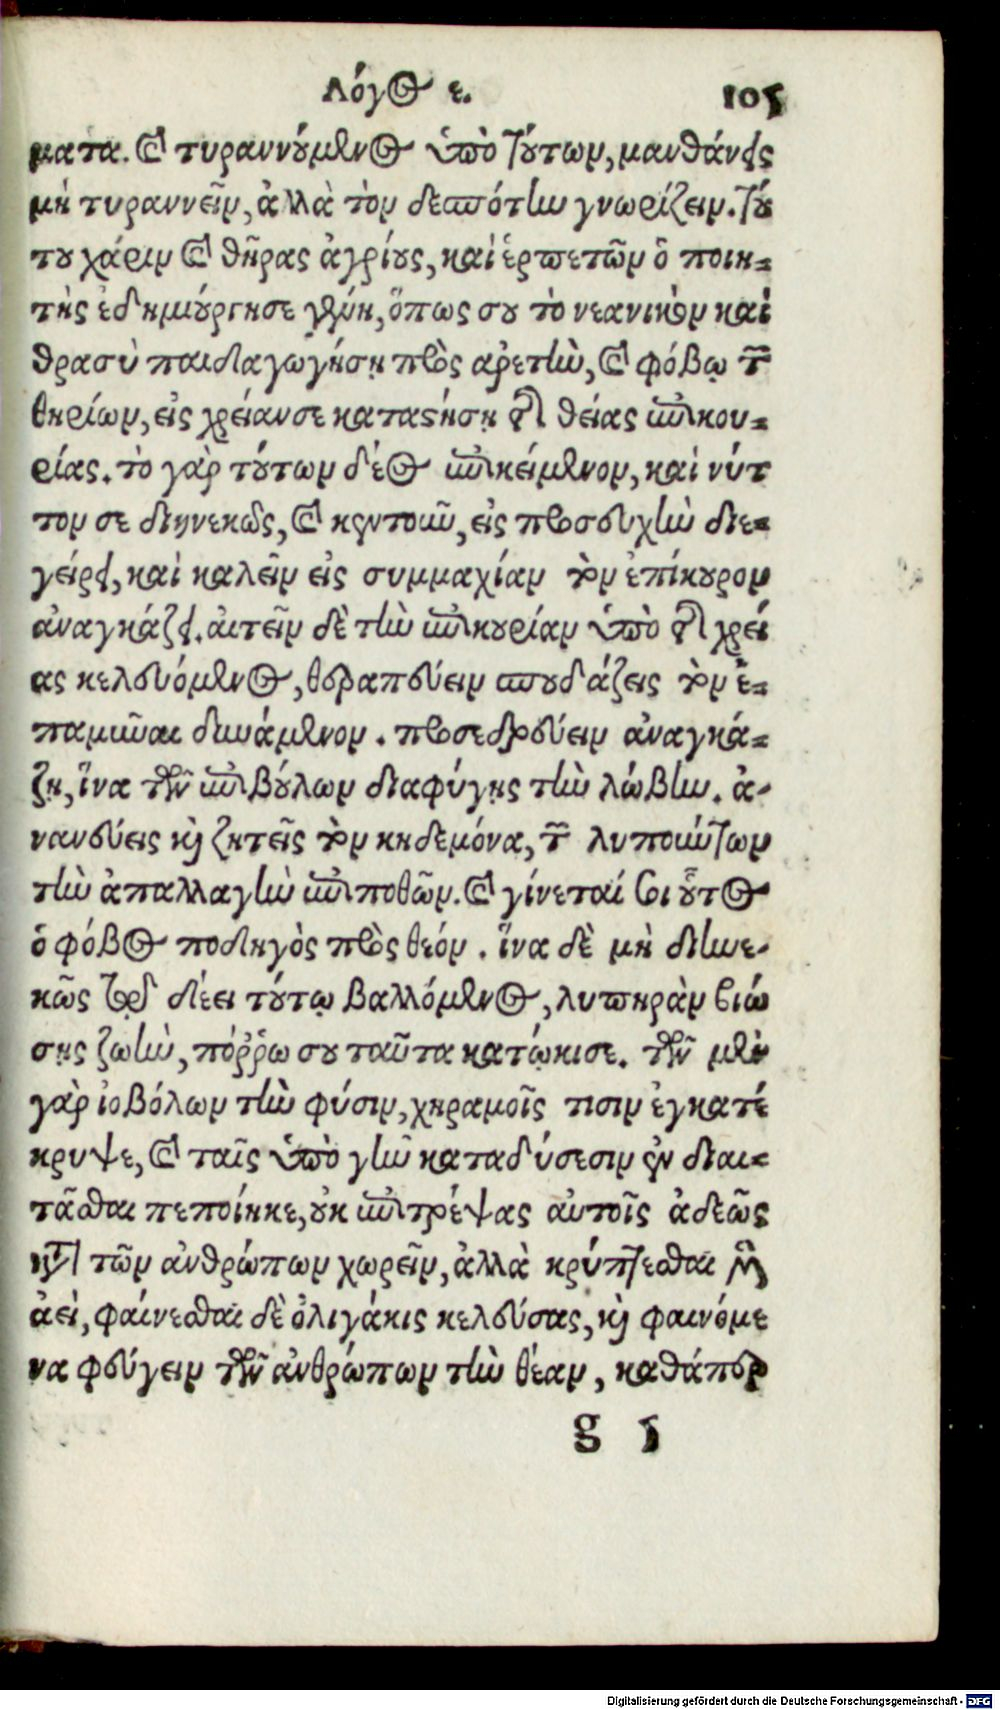 Λόγος ε. 105
ματα. καὶ τυραννούμενος ὑπὸ τούτων, μανθάνεις
μὴ τυραννεῖν, ἀλλὰ τὸν δεσπότην γνωρίζειν. τού
του χάριν καὶ θῆρας ἀγρίους, καὶ ἑρπετῶν ὁ ποιη-
τὴς ἐδημιούργησε γένη, ὅπως σου τὸ νεανικὸν καὶ
θρασὺ παιδαγωγήσῃ πρὸς ἀρετὴν, καὶ φόβῳ τῶν
θηρίων, εἰς χρείαν σε καταστήσῃ τῆς θείας ἐπικου-
ρίας. τὸ γὰρ τούτων δέος ἐπικείμενον, καὶ νύτ
τον σε διηνεκῶς, καὶ κεντοῦν, εἰς προσευχὴν διε-
γείρει, καὶ καλεῖν εἰς συμμαχίαν τὸν ἐπίκουρον
ἀναγκάζει. αἰτεῖν δὲ τὴν ἐπικουρίαν ὑπὸ τῆς χρεί
ας κελευόμενος, θεραπεύειν σπουδάζεις τὸν ἐ-
παμῦναι δυνάμενον. προσεδρεύειν ἀναγκά-
ζῃ, ἵνα τῶν ἐπιβούλων διαφύγῃς τὴν λώβην. ἀ-
νανεύεις καὶ ζητεῖς τὸν κηδεμόνα, τῶν λυπούντων
τὴν ἀπαλλαγὴν ἐπιποθῶν. καὶ γίνεταί σοι οὗτος
ὁ φόβος ποδηγὸς πρὸς θεόν. ἵνα δὲ μὴ διηνε-
κῶς τῷ δέει τούτῳ βαλλόμενος, λυπηρὰν βιώ
σῃς ζωὴν, πόῤῥω σου ταῦτα κατῴκισε. τῶν μὲν
γὰρ ἰοβόλων τὴν φύσιν, χηραμοῖς τισιν ἐγκατέ
κρυψε, καὶ ταῖς ὑπὸ γῆν καταδύσεσιν ἐν διαι-
τᾶσθαι πεποίηκε, οὐκ ἐπιτρέψας αὐτοῖς ἀδεῶς
κατὰ τῶν ἀνθρώπων χωρεῖν, ἀλλὰ κρύπτεσθαι μὲν
ἀεὶ, φαίνεσθαι δὲ ὀλιγάκις κελεύσας, καὶ φαινόμε
να φεύγειν τῶν ἀνθρώπων τὴν θέαν, καθάπερ
g 5
Digitalisierung gefördert durch die Deutsche Forschungsgemeinschaft - DFG